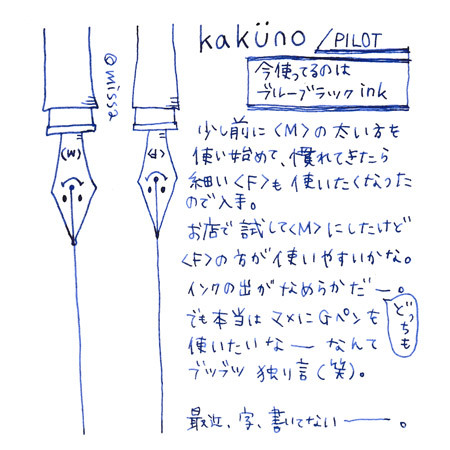 kaküno / PILOT
今使ってるのは
ブルーブラック ink
@missa
<M>
<F>
少し前に<M>の太い方も
使い始めて、慣れてきたら
細い<F>も使いたくなった
ので入手。
お店で試して<M>にしたけど
<F>の方が使いやすいかな。
インクの出がなめらかだー。
どっちも
でも本当はマメにGペンを
使いたいなー なんて
ブツブツ 独り言(笑)。
最近、字、書いてないー。